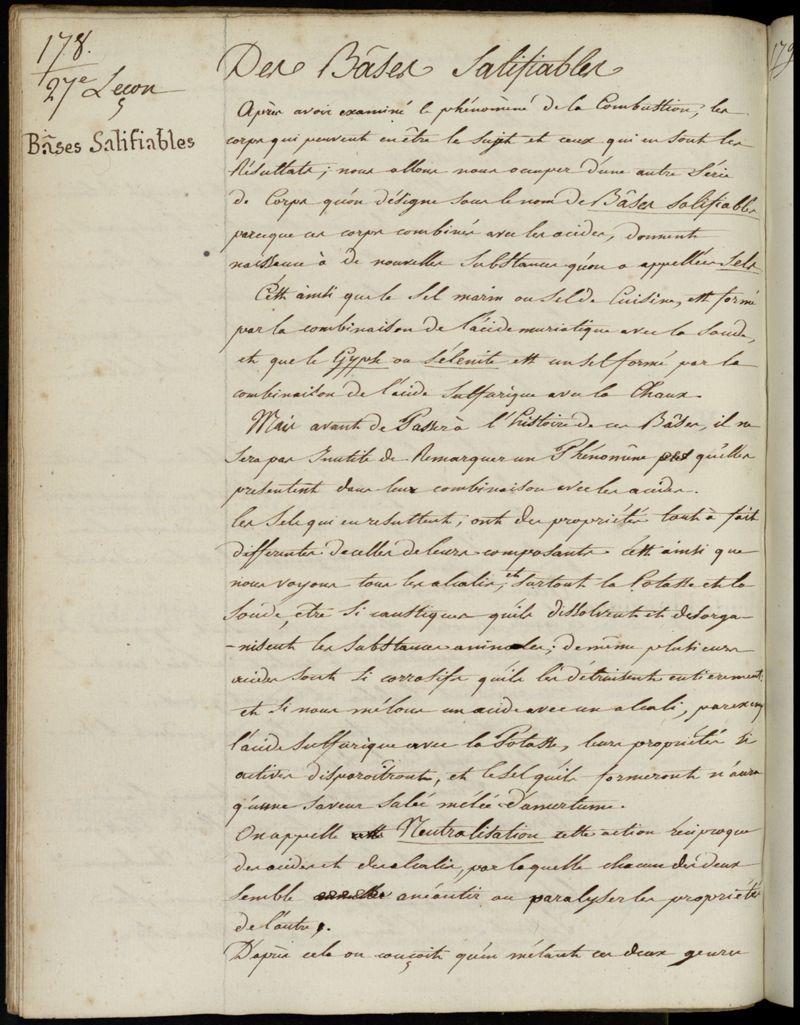 178.
27e Leçon
Bâses Salifiables
Des Bâses Salifiables
Après avoir examiné le phénomène de la Combustion, les
corps qui peuvent en être le sujet et ceux qui en sont les
Résultats; nous allons nous occuper d'une autre Série
de Corps qu'on désigne sous le nom de Bâses Salifiables
parceque ces corps combinés avec les acides, donnent
naissance à de nouvelles Substances qu'on a appellées Sels.
C'est ainsi que le Sel marin ou Sel de Cuisine, est formé
par la combinaison de l'acide muriatique avec la Soude,
et que le Gypse ou Sélénite est un sel formé par la
combinaison de l'acide Sulfurique avec la Chaux.
Mais avant de Passer à l'histoire de ces Bâses, il ne
Sera pas Inutile de Remarquer un Phénomène qu'elles
presentent dans leur combinaison avec les acides.
les Sels qui en resultent, ont des propriétés tout à fait
differentes de celles de leurs composants. C'est ainsi que
nous voyons tous les alcalis, et surtout la Potasse et la
Soude, être si caustiques qu'ils dissolvent et désorga-
-nisent les substances animales; de même plusieurs
acides sont si corrosifs qu'ils les détruisent entierement;
et si nous mêlons un acide avec un alcali, par exemp
l'acide Sulfurique avec la Potasse, leurs propriétés si
actives disparoîtront, et le sel qu'ils formeront n'aura
qu'une Saveur Salée mêlée d'amertume.
On appelle Neutralisation cette action réciproque
des acides et des alcalis, par laquelle chacun des deux
semble anéantir ou paralyser les propriétés
de l'autre.
D'après cela on conçoit qu'en mêlant ces deux genres
179